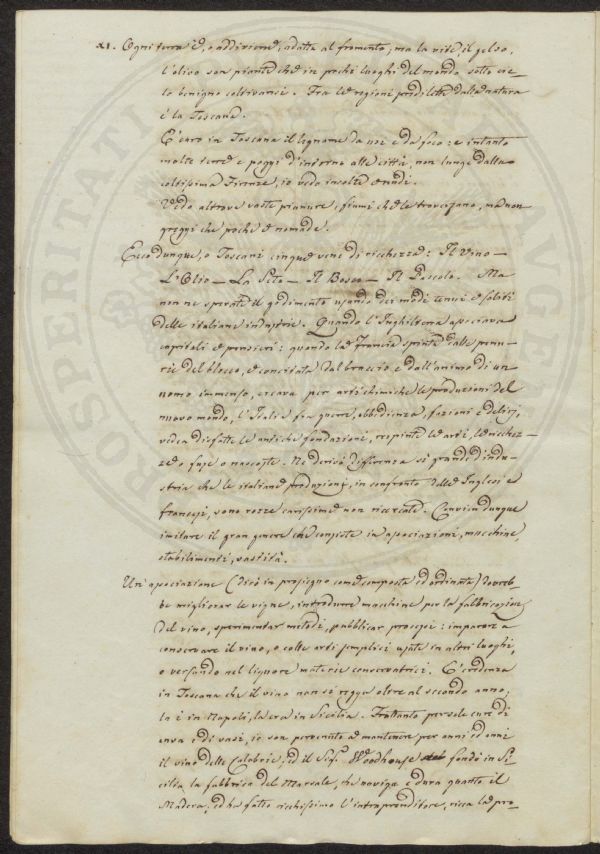 21. Ogni terra è, o addiviene, adatta al fromento; ma la vite, il gelso,
l'olivo son piante che in pochi luoghi del mondo sotto cie-
lo benigno coltivansi. Fra le regioni predilette dalla natura
è la Toscana.
È caro in Toscana il legname da uso e da foco: e intanto
molte terre e poggi d'intorno alle città, non lunge dalla
coltissima Firenze, io vedo incolte e nudi.
Vedo altrove vaste pianure, fiumi che le traversano, ma non
greggi che poche e nomade.
Ecco dunque, o Toscani cinque vene di ricchezza: Il Vino —
L'Olio — La Seta — Il Bosco — Il Pascolo. Ma
non ne sperate il godimento usando dei modi tenui e soliti
delle italiane industrie. Quando l'Inghilterra associava
capitali e pensieri: quando la Francia spinta dalle penu-
rie del blocco, e concitata dal braccio e dall'animo di un
uomo immenso, creava per arti chimiche le produzioni del
nuovo mondo, l'Italia fra guerre, obbedienza, fazioni e delirj,
vedea disfatte le antiche fondazioni, respinte le arti, le ricchez-
ze o fuse o nascoste. Ne derivò differenza sì grande d'indu-
stria che le italiane produzioni, in confronto delle Inglesi e
francesi, sono rozze carissime non ricercate. Convien dunque
imitare il gran genere che consiste in associazioni, macchine,
stabilimenti, vastità.
Un'associazione (dirò in prosieguo come composta ed ordinata) dovreb-
be migliorar le vigne, introdurre macchine per la fabbricazione
del vino, sperimentar metodi, pubblicar processi: imparare a
conservare il vino, o colle arti semplici usate in altri luoghi,
o versando nel liquore materie conservatrici. È credenza
in Toscana che il vino non si regge oltre al secondo anno;
la è in Napoli, la era in Sicilia. Frattanto per sole cure di
uva e di vasi, io son pervenuto a mantenere per anni ed anni
il vino delle Calabrie; ed il Sig.r Woodhouse fondò in Si-
cilia la fabbrica del Marsala, che naviga e dura quanto il
Madera; ed ha fatto ricchissimo l'intraprenditore, ricca la pro-